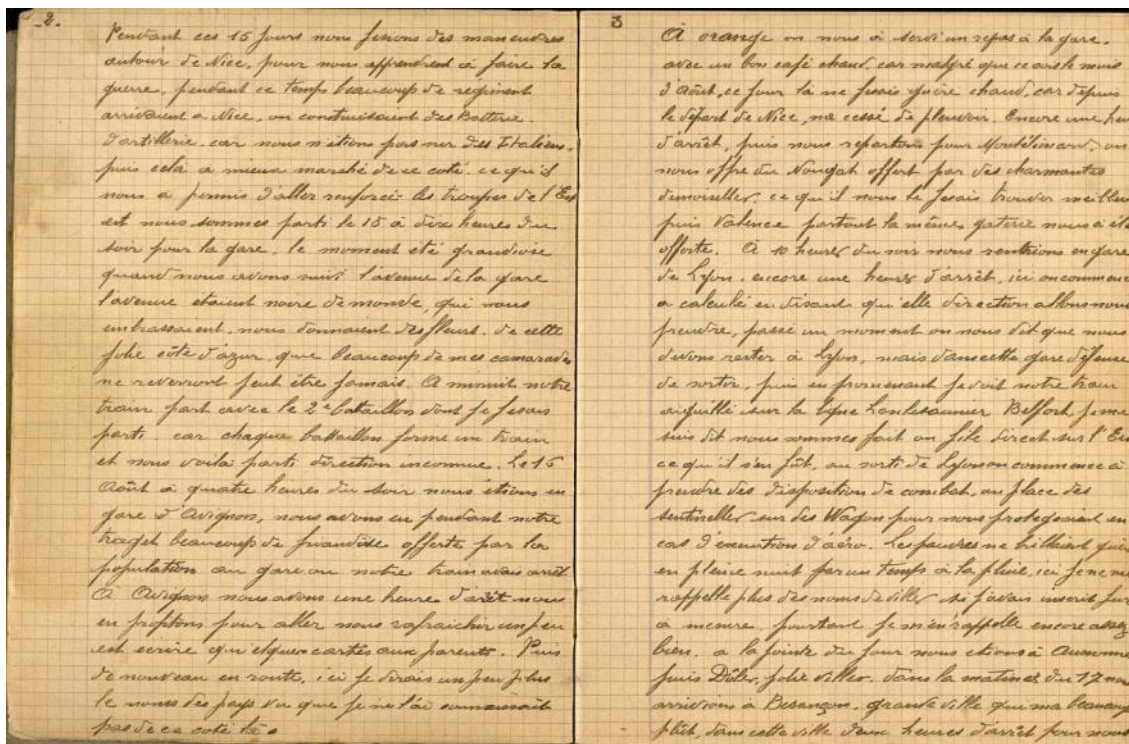 -2-
Pendant ces 15 jours nous fesions des maneuvres
autour de Nice, pour nous apprendrent à faire la
guerre, pendant ce temps beaucoup de régiment
arrivaient a Nice, on construisaient des Batterie
d'artillerie. car nous n'étions pas sur des Italiens,
puis celà à mieux marché de ce coté. ce qu'il
nous a permis d'aller renforcé les troupes de l'Est
est nous sommes parti le 15 à dix heures du
soir pour la gare. le moment été grandiose
quand nous avons suivi l'avenue de la gare
l'avenue étaient noire de monde, qui nous
embrassaient. nous donnaient des fleurs. de cette
jolie côte d'azur. que beaucoup de mes camarades
ne reverront peut être jamais. A minuit notre
train part avec le 2e bataillon dont je fesais
parti. car chaque battaillon forme un train
et nous voilà parti direction inconnue. Le 15
Août à quatre heures du soir nous étions en
gare d'Avignon, nous avons eu pendant notre
traget beaucoup de friandise offerte par la
population au gare ou notre train avais arrêt
A Avignon nous avons une heure d'arêt nous
en profitons pour aller nous rafraichir un peu
est ecrire quelques cartes aux parents. Puis
de nouveau en route, ici je dirais un peu plus
le noms des pays vu que je ne l'ai connaisait
pas de ce coté là.
3
A orange on nous à servi un repas à la gare.
avec un bon café chaud. car malgré que ce sois le mois
d'Août, ce jour là ne fesais guère chaud, car depuis
le départ de Nice, na cessé de pleuvoir. Encore une heu
d'arrêt, puis nous repartons pour Montélimard, on
nous offre du Nougat offert par des charmantes
demoiselles. ce qu'il nous le fesais trouver meilleur
puis Valence partout la même gaterie nous à été
offerte. A 10 heures du soir nous rentrions en gare
de Lyon. encore une heures d'arrêt, ici on commence
a calculé en disant qu'elle direction allons nous
prendre, passé un moment on nous dit que nous
devons rester à Lyon, mais dans cette gare défense
de sortir, puis en promenant je voit notre train
aiguillé sur la ligne Lonlesaunier Belfort, je me
suis dit nous sommes fait on file direct sur l'Est
ce qu'il s'en fût, au sorti de Lyon on commence à
prendre des disposition de combat, on place des
sentinelles sur des Wagon pour nous protegeaient en
cas d'excurtion d'aéro. Les poudres ne brillaient guère
en pleine nuit par un temps à la pluie, ici je ne me
rappelle plus des noms de villes si j'avais inscrit fur
a mesure. pourtant je m'en rappelle encore assez
bien. a la pointe du jour nous etions à Auxonne
puis Dôle, jolie villes. dans la matinée du 17 nous
arrivions à Besançon. grande ville qui ma beaucoup
plût, dans cette ville deux heures d'arrêt pour nous